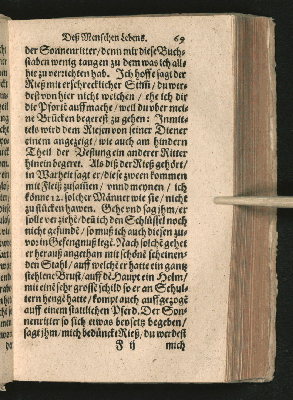 Deß Menschen Lebens. 69
der Sonnenritter/denn mit diese Buch-
staben wenig taugen zu dem was ich all-
hie zu verrichten hab. Ich hoffe sagt der
Rieß mit erschrecklicher Stim̃/ du wer-
dest von hier nicht weichen / ehe ich dir
die Pfort auffmache/ weil du vber mei-
ne Brücken begerest zu gehen: Inmit-
tels wird dem Riesen von seiner Diener
einem angezeigt/ wie auch am hindern
Theil der Vestung ein anderer Ritter
hinein begeret. Als diß der Rieß gehöret/
in Warheit sagt er/ diese zween kommen
mit fleiß zusam̃en / vund meynen / ich
könne 12. solcher Männer wie sie/ nicht
zu stücken hawen. Gehe vnd sag ihm/ er
solle verziehē/ deñ ich den Schlüssel noch
nicht gefundē/ so muß ich auch diesen zu-
vor in Gefengnuß legē. Nach solchē gehet
er herauß angethan mit schönē scheinen-
den Stahl/ auff welchē er hatte ein gantz
stehlene Brust/ auff dē Haupt ein Helm/
mit eine sehr grosse schild so er an Schul-
tern hengē hatte/ kompt auch auffgezogē
auff einem stattlichen Pferd. Der Son-
nenritter so sich etwas beyseytz begeben/
sagt jhm/ mich bedünckt Rieß/ du werdest
F ij mich